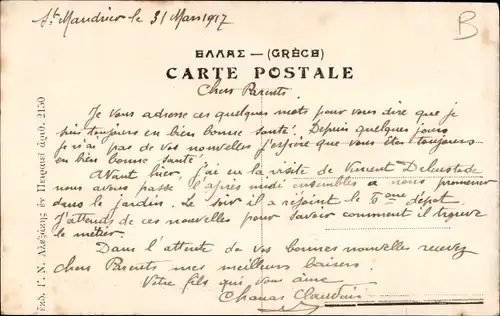 St Mandrier le 31 Mars 1917
B
ΕΛΛΑΣ — (GRÈCE)
CARTE POSTALE
Chers Parents.
Je vous adresse ces quelques mots pour vous dire que je
suis toujours en bien bonne santé. Depuis quelques jours
je n'ai pas de vos nouvelles j'espère que vous êtes toujours
en bien bonne santé.
Avant hier, j'ai eu la visite de Vincent
nous avons passé l'après midi ensembles a nous promener
dans le jardin. Le soir il a rejoint le 5ème dépot
J'attends de ces nouvelles pour savoir comment il trouve
le métier.
Dans l'attente de vos bonnes nouvelles recevez
chers Parents mes meilleurs baisers.
Votre fils qui vous aime
Claudius
Ἐκδ. Γ. Ν. Ἀλεξάκης ἐν Πειραιεῖ ἀριθ. 2150